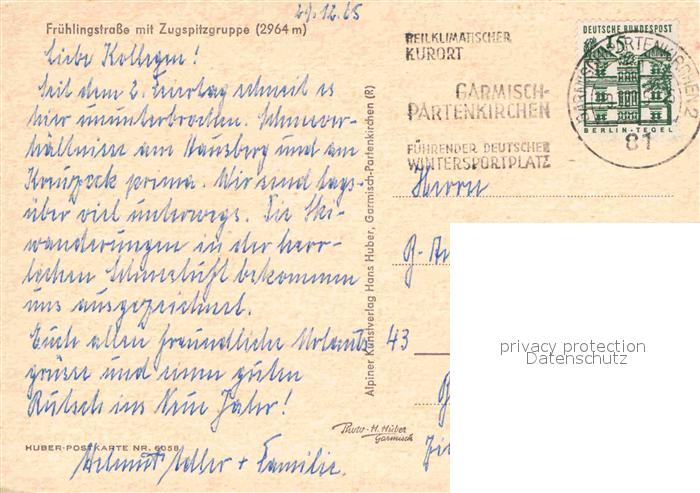 29.12.65
Frühlingstraße mit Zugspitzgruppe (2964 m)
Liebe Kollegen!
Seit dem 2. Feiertag schneit es
hier ununterbrochen. Schneever-
hältnisse am Hausberg und am
Kreuzeck prima. Wir sind tags-
über viel unterwegs. Die Ski-
wanderungen in der herr-
lichen Schneeluft bekommen
uns ausgezeichnet.
Euch allen freundliche Urlaubs-
grüsse und einen guten
Rutsch ins Neue Jahr!
Helmut Adler + Familie.
HUBER-POSTKARTE NR. 6058
Photo-H. Huber
Garmisch
Alpiner Kunstverlag Hans Huber, Garmisch-Partenkirchen (R)
HEILKLIMATISCHER
KURORT
GARMISCH-
PARTENKIRCHEN
FÜHRENDER DEUTSCHER
WINTERSPORTPLATZ
DEUTSCHE BUNDESPOST
BERLIN-TEGEL
GARMISCH-PARTENKIRCHEN 2
81
Herrn
43
privacy protection
Datenschutz